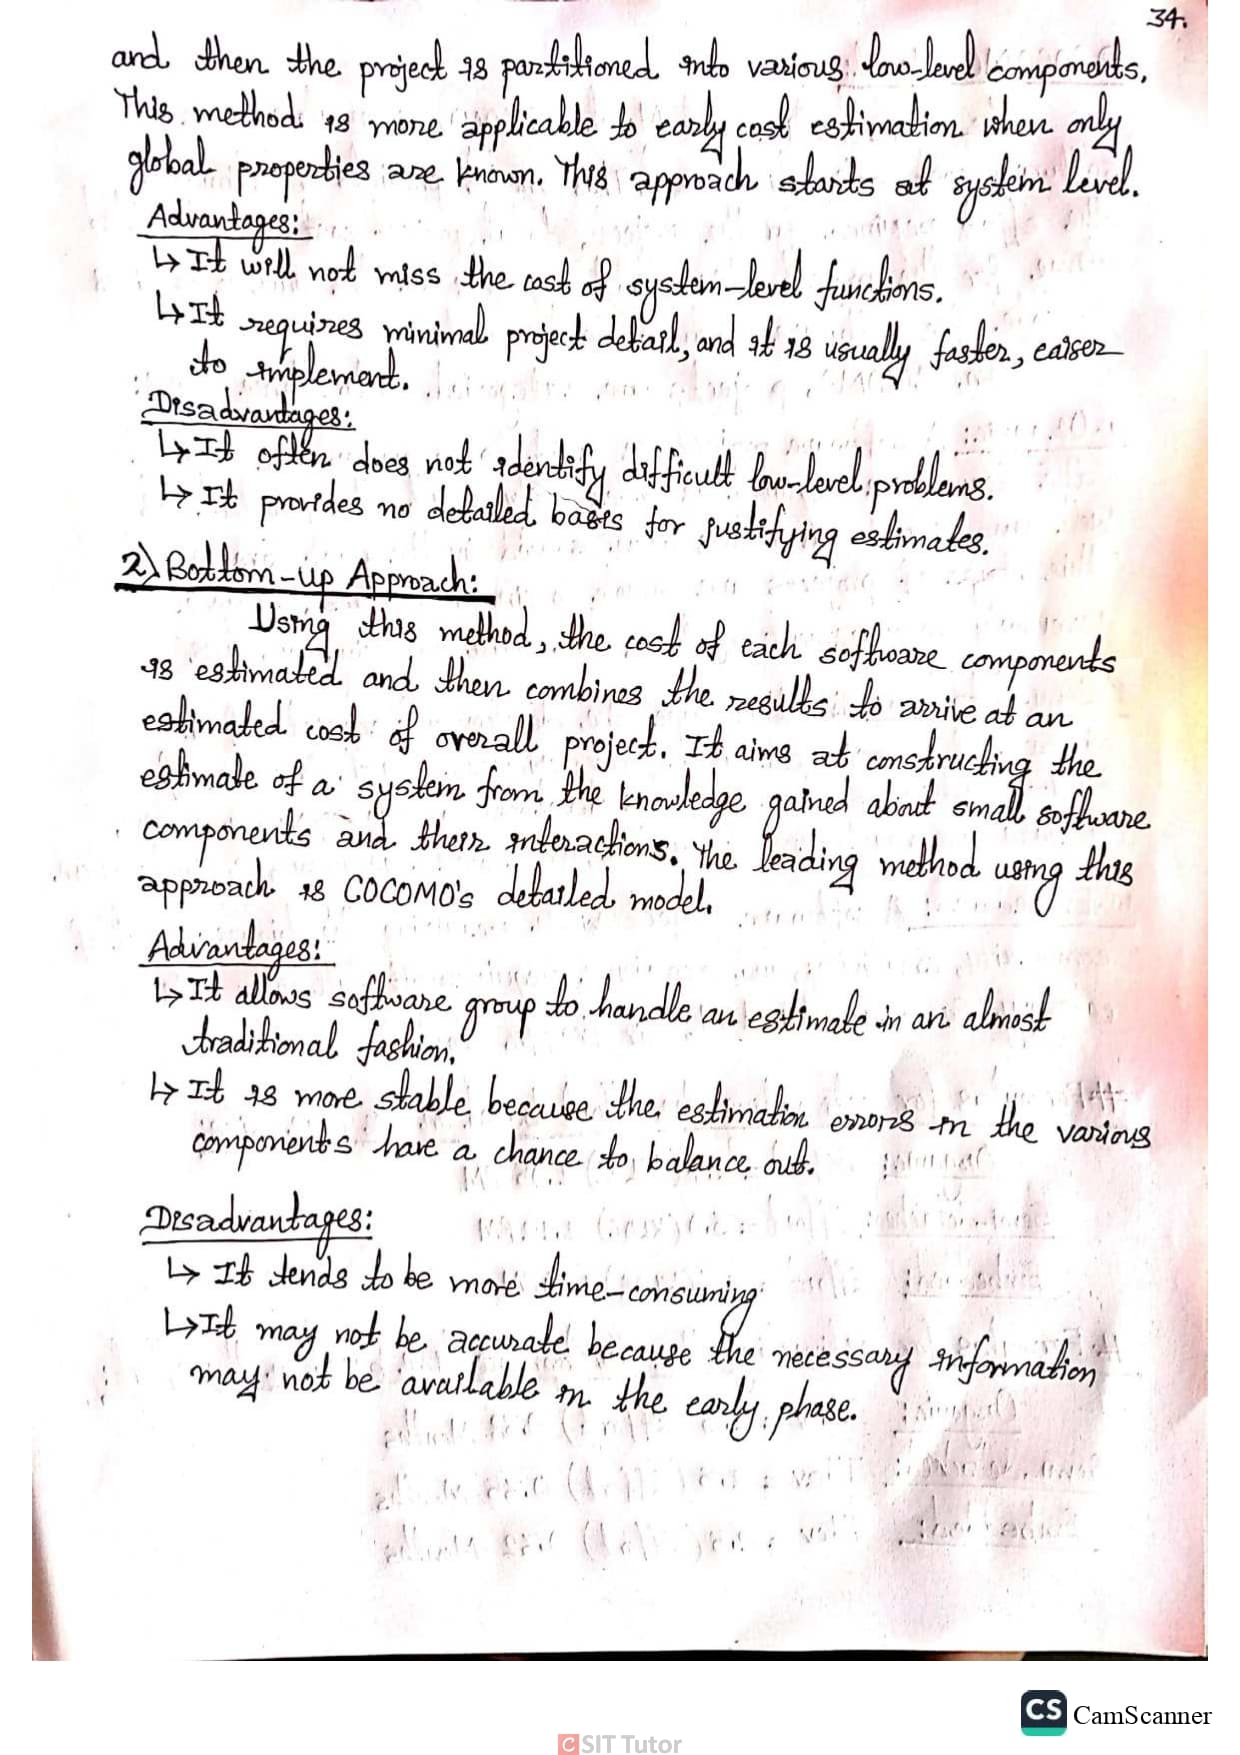 34.
and then the project is partitioned into various low-level components.
This method is more applicable to early cost estimation when only
global properties are known. This approach starts at system level.
Advantages:
↳ It will not miss the cost of system-level functions.
↳ It requires minimal project detail, and it is usually faster, eaiser
to implement.
Disadvantages:
↳ It often does not identify difficult low-level problems.
↳ It provides no detailed basis for justifying estimates.
2) Bottom-up Approach:
Using this method, the cost of each software components
is estimated and then combines the results to arrive at an
estimated cost of overall project. It aims at constructing the
estimate of a system from the knowledge gained about small software
components and their interactions. The leading method using this
approach is COCOMO's detailed model.
Advantages:
↳ It allows software group to handle an estimate in an almost
traditional fashion.
↳ It is more stable because the estimation errors in the various
components have a chance to balance out.
Disadvantages:
↳ It tends to be more time-consuming
↳ It may not be accurate because the necessary information
may not be available in the early phase.
CS CamScanner
CSIT Tutor